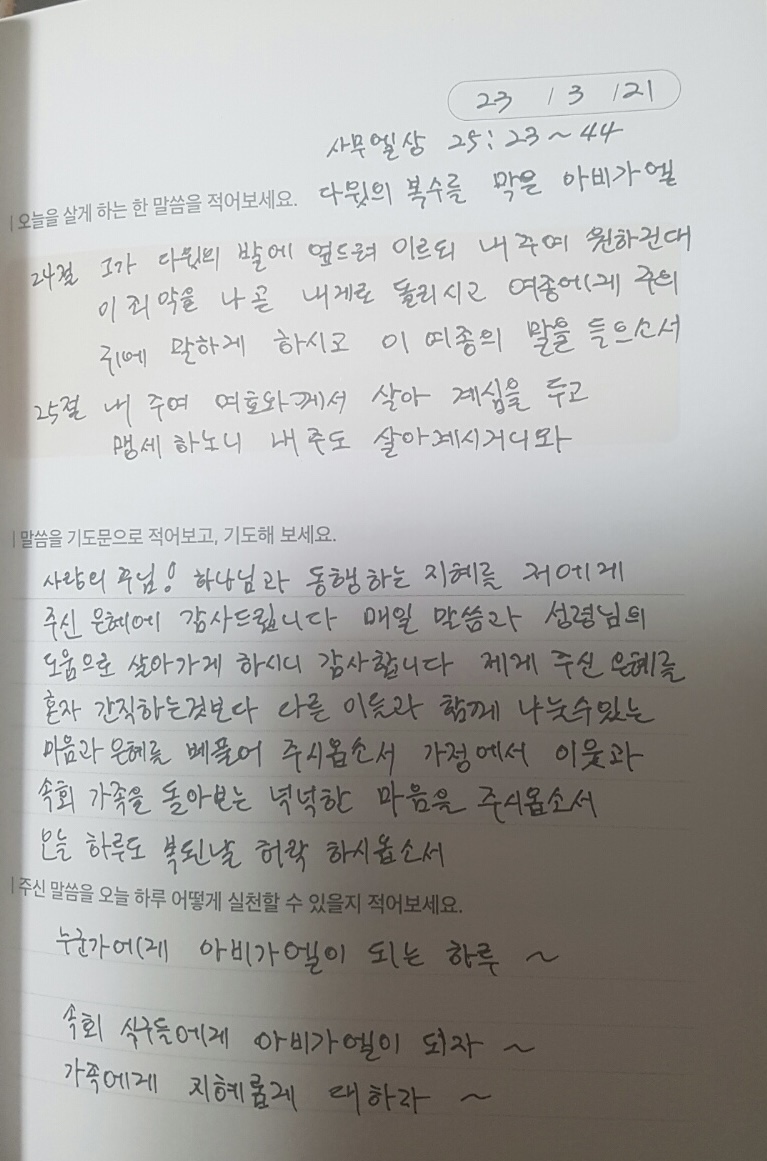 23 / 3 / 21
사무엘상 25:23~44
|오늘을 살게 하는 한 말씀을 적어보세요. 다윗의 복수를 막은 아비가엘
24절 그가 다윗의 발에 엎드려 이르되 내 주여 원하건대
이 죄악을 나 곧 내게로 돌리시고 여종에게 주의
귀에 말하게 하시고 이 여종의 말을 들으소서
25절 내 주여 여호와께서 살아 계심을 두고
맹세하노니 내 주도 살아계시거니와
|말씀을 기도문으로 적어보고, 기도해 보세요.
사랑의 주님! 하나님과 동행하는 지혜를 저에게
주신 은혜에 감사드립니다 매일 말씀과 성령님의
도움으로 살아가게 하시니 감사합니다 제게 주신 은혜를
혼자 간직하는것보다 다른 이웃과 함께 나눌수있는
마음과 은혜를 베풀어 주시옵소서 가정에서 이웃과
속회 가족을 돌아보는 넉넉한 마음을 주시옵소서
오늘 하루도 복된날 허락 하시옵소서
|주신 말씀을 오늘 하루 어떻게 실천할 수 있을지 적어보세요.
누군가에게 아비가엘이 되는 하루 ~
속회 식구들에게 아비가엘이 되자 ~
가족에게 지혜롭게 대하라 ~